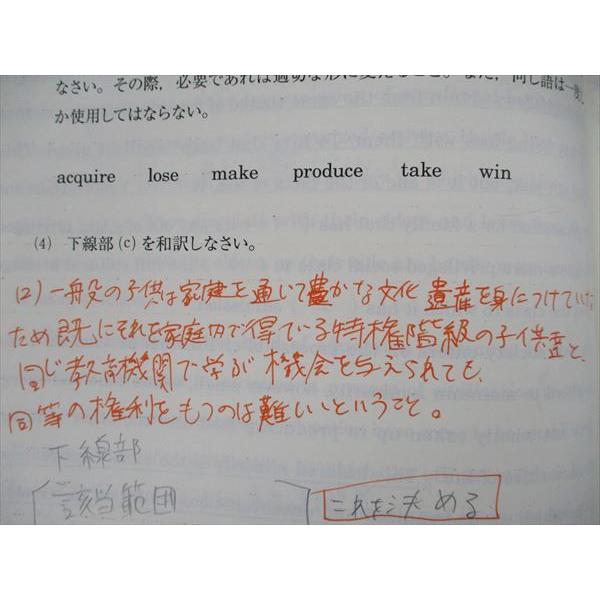 なさい。その際，必要であれば適切な形に変えること。また，同じ語は一度
か使用してはならない。
acquire lose make produce take win
(4) 下線部 (c) を和訳しなさい。
(2) 一般の子供は家庭を通いて豊かな文化遺産を身につけていな
ため既にそれを家庭内で得ている特権階級の子供達と、
同じ教育機関で学ぶ機会を与えられても、
同等の権利をもつのは難しいということ。
下線部
該当範囲
これを決める